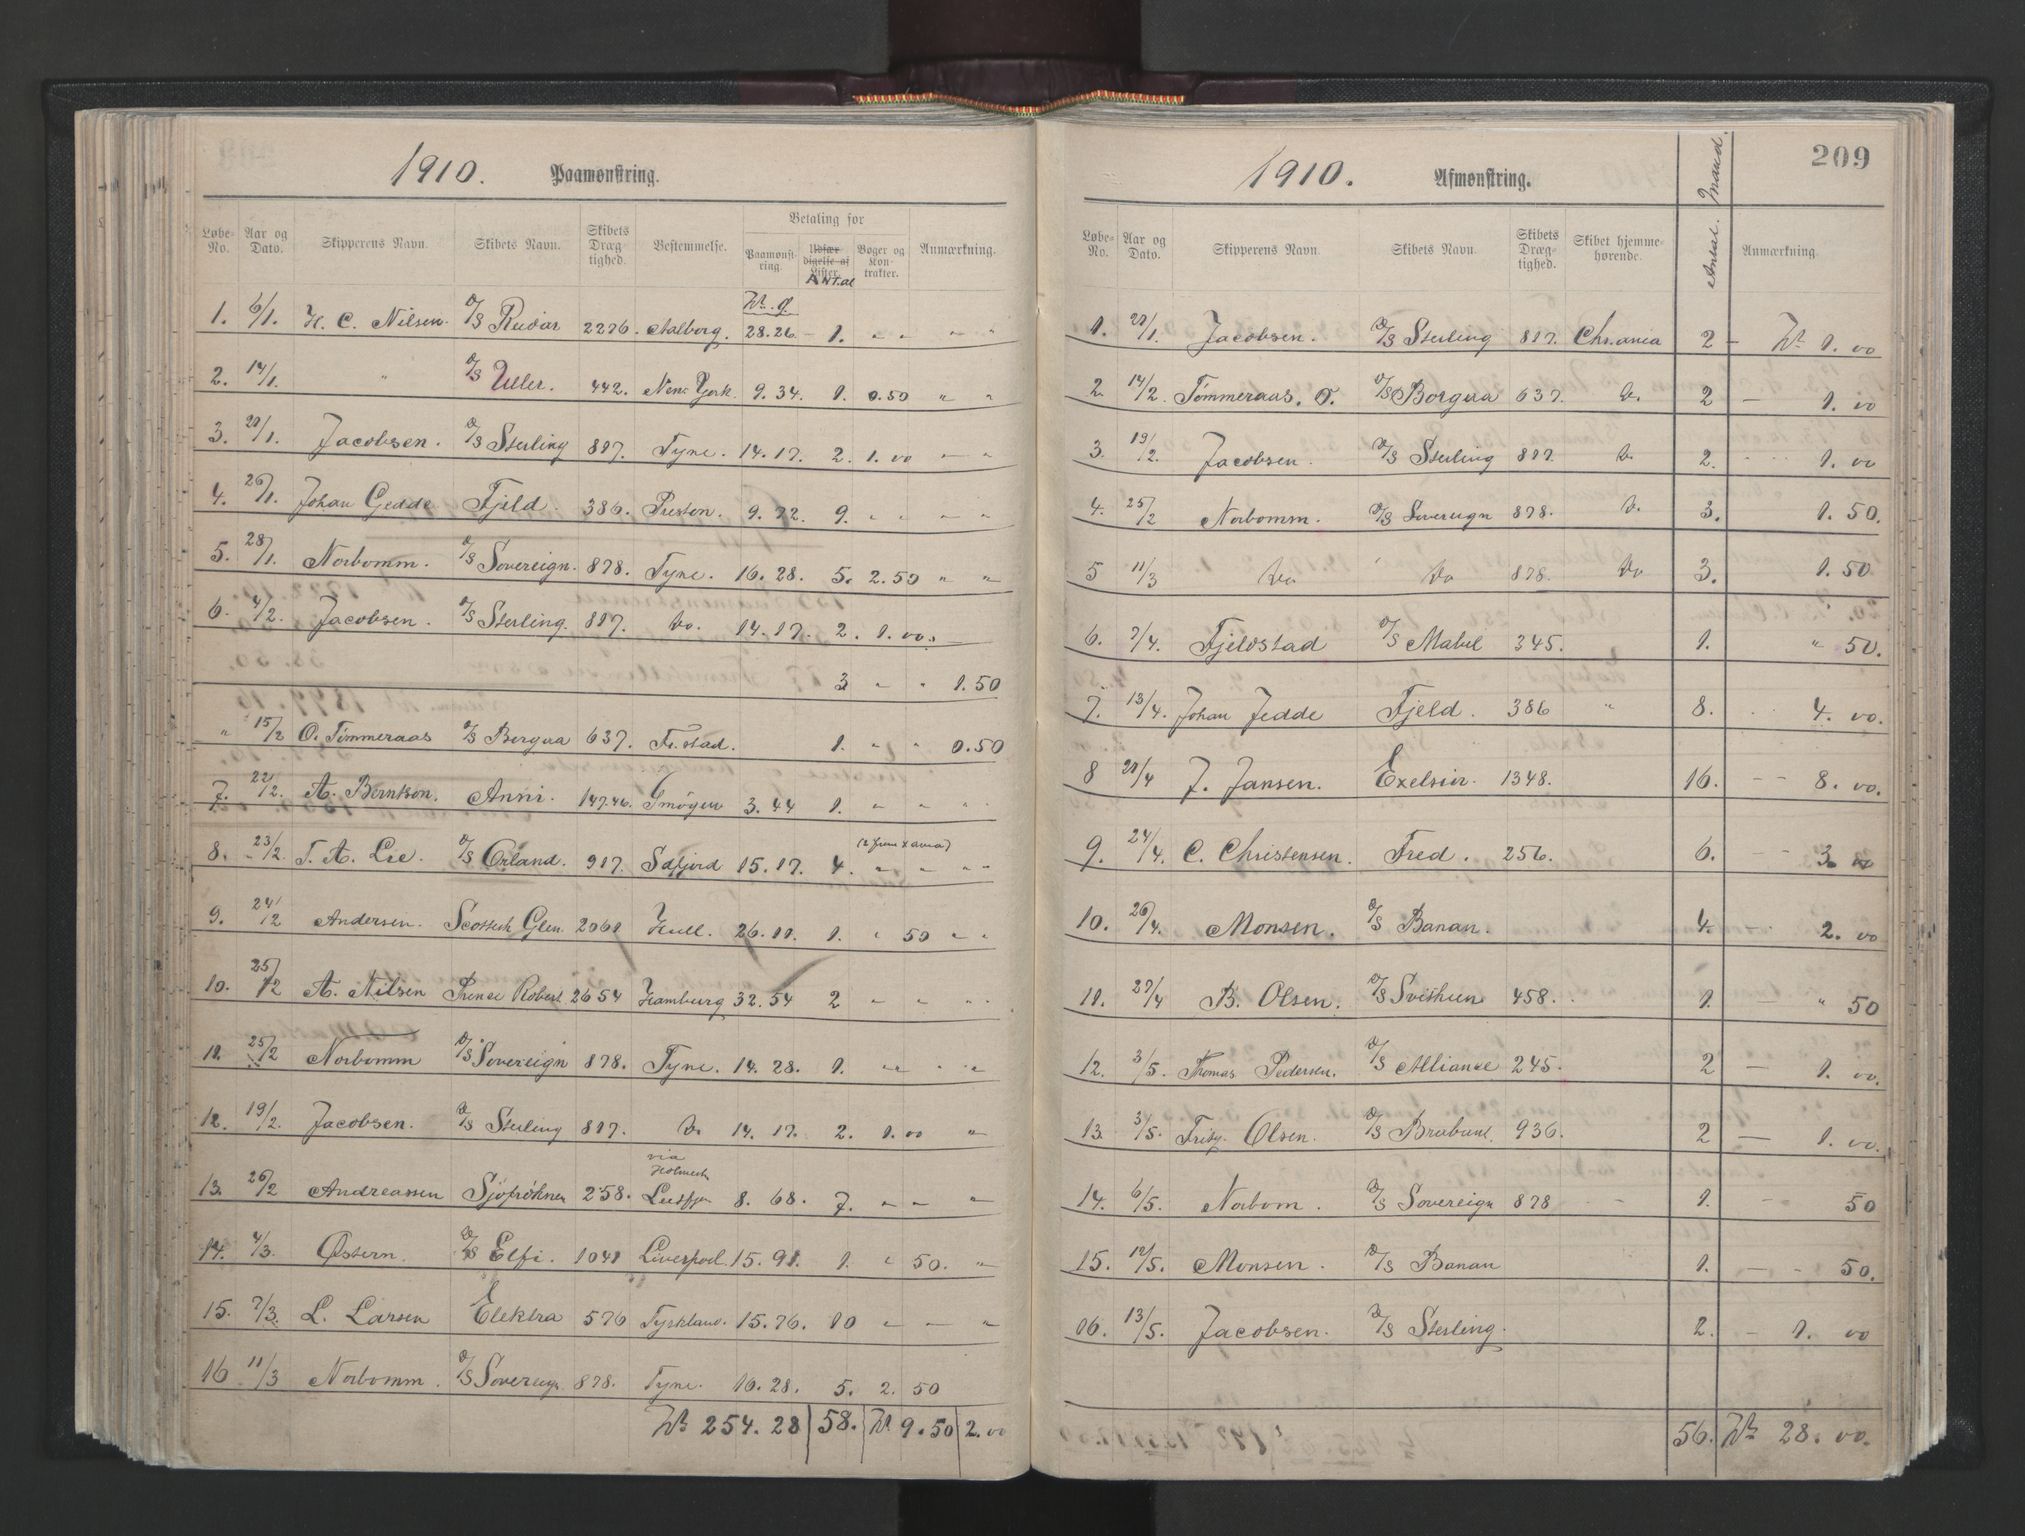 1910. Paamønstring.
Løbe-No. Aar og Dato. Skipperens Navn. Skibets Navn. Skibets Dræg-tighed. Bestemmelse. Betaling for Paamønst-ring. Udfær-digelse af Lister. ANTal Bøger og Kon-trakter. Anmærkning.
Kr. Ø.
1. 6/1. H. C. Nilsen. D/S Reidar 2276. Aalborg. 28.26. - 1. " " " "
2. 14/1. " D/S Uller. 442. New York. 9.34. 1. 0.50 " "
3. 21/1. Jacobsen. D/S Sterling 817. Tyne. 14.17. 2. 1.00 " "
4. 26/1. Johan Gedde Fjeld. 386. Preston. 9.72. 9. " " " "
5. 28/1. Norbomm. D/S Sovereign. 878. Tyne. 16.28. 5. 2.50 " "
6. 4/2. Jacobsen. D/S Sterling. 817. Do. 14.17. 2. 1.00.
3 " " 1.50
" 15/2 O. Tømmeraas D/S Borgaa 637. Fr.stad. 1. " " 0.50
7. 22/2. A. Berntson. Anni. 147.46. Smögen 3.44 1. " " " "
8. 23/2. T. A. Lie. D/S Orland. 917. Sdfjord 15.17. 4. " " " "
9. 24/2 Andersen. Scottish Glen. 2061 Hull. 26.11. 1. " 50 " "
10. 25/2 A. Nilsen Prince Robert 2654 Hamburg 32.54 2 " " " "
11. 25/2 Norbomm D/S Sovereign 878. Tyne. 14.28. 1. " " " "
12. 19/2. Jacobsen. D/S Sterling 817. Do 14.17. 2. 1.00 "
via
13. 26/2 Andreassen 258. 8.68. 7. " " "
14. 4/3. Østern. D/S Elfi. 1041 Liverpool. 15.91. 1. " 50. "
15. 7/3. L. Larsen Elektra 576 Tyskland. 15.76. 10 " — "
16 11/3 Norbomm. D/S Sovereign 878. Tyne. 16.28. 5. 2.50
Kr 254.28 58. Kr 9.50 2.00
1910. Afmønstring. 209
Løbe-No. Aar og Dato. Skipperens Navn. Skibets Navn. Skibets Dræg-tighed. Skibet hjemme-hørende. Antal. Mand. Anmærkning.
1. 21/1. Jacobsen. D/S Sterling 817. Chr.ania 2 — Kr 1.00
2. 14/2. Tømmeraas. O. D/S Borgaa 637. Do. 2 — 1.00
3. 19/2. Jacobsen. D/S Sterling 817. Do. 2. 1.00
4. 25/2 Norbomm. D/S Sovereign 878. Do. 3. 1.50.
5 11/3 Do Do 878. Do 3. 1.50
6. 7/4. Fjeldstad D/S Mabel 345. 1. " 50.
7. 13/4. Johan Jedde Fjeld. 386 " 8. 4.00.
8 21/4 J. Jansen. Exelsior. 1348. 16. — 8.00.
9. 24/4. C. Christensen. Fred. 256. 6. — 3.00
10. 26/4. Monsen. D/S Banan. 4. — 2.00
11. 27/4 B. Olsen. D/S Svithun 458. 1. — " 50
12. 3/5. Thomas Pedersen. D/S Alliance 245. 2 — 1.00.
13. 3/5. Fritz Olsen. D/S Brabant. 936. 2 — 1.00.
14. 6/5. Norbom. D/S Sovereign 878 1. - 50
15. 12/5. Monsen. D/S Banan 1. — - 50.
16. 13/5. Jacobsen. D/S Sterling. 2. - 1.00
56. Kr 28.00.